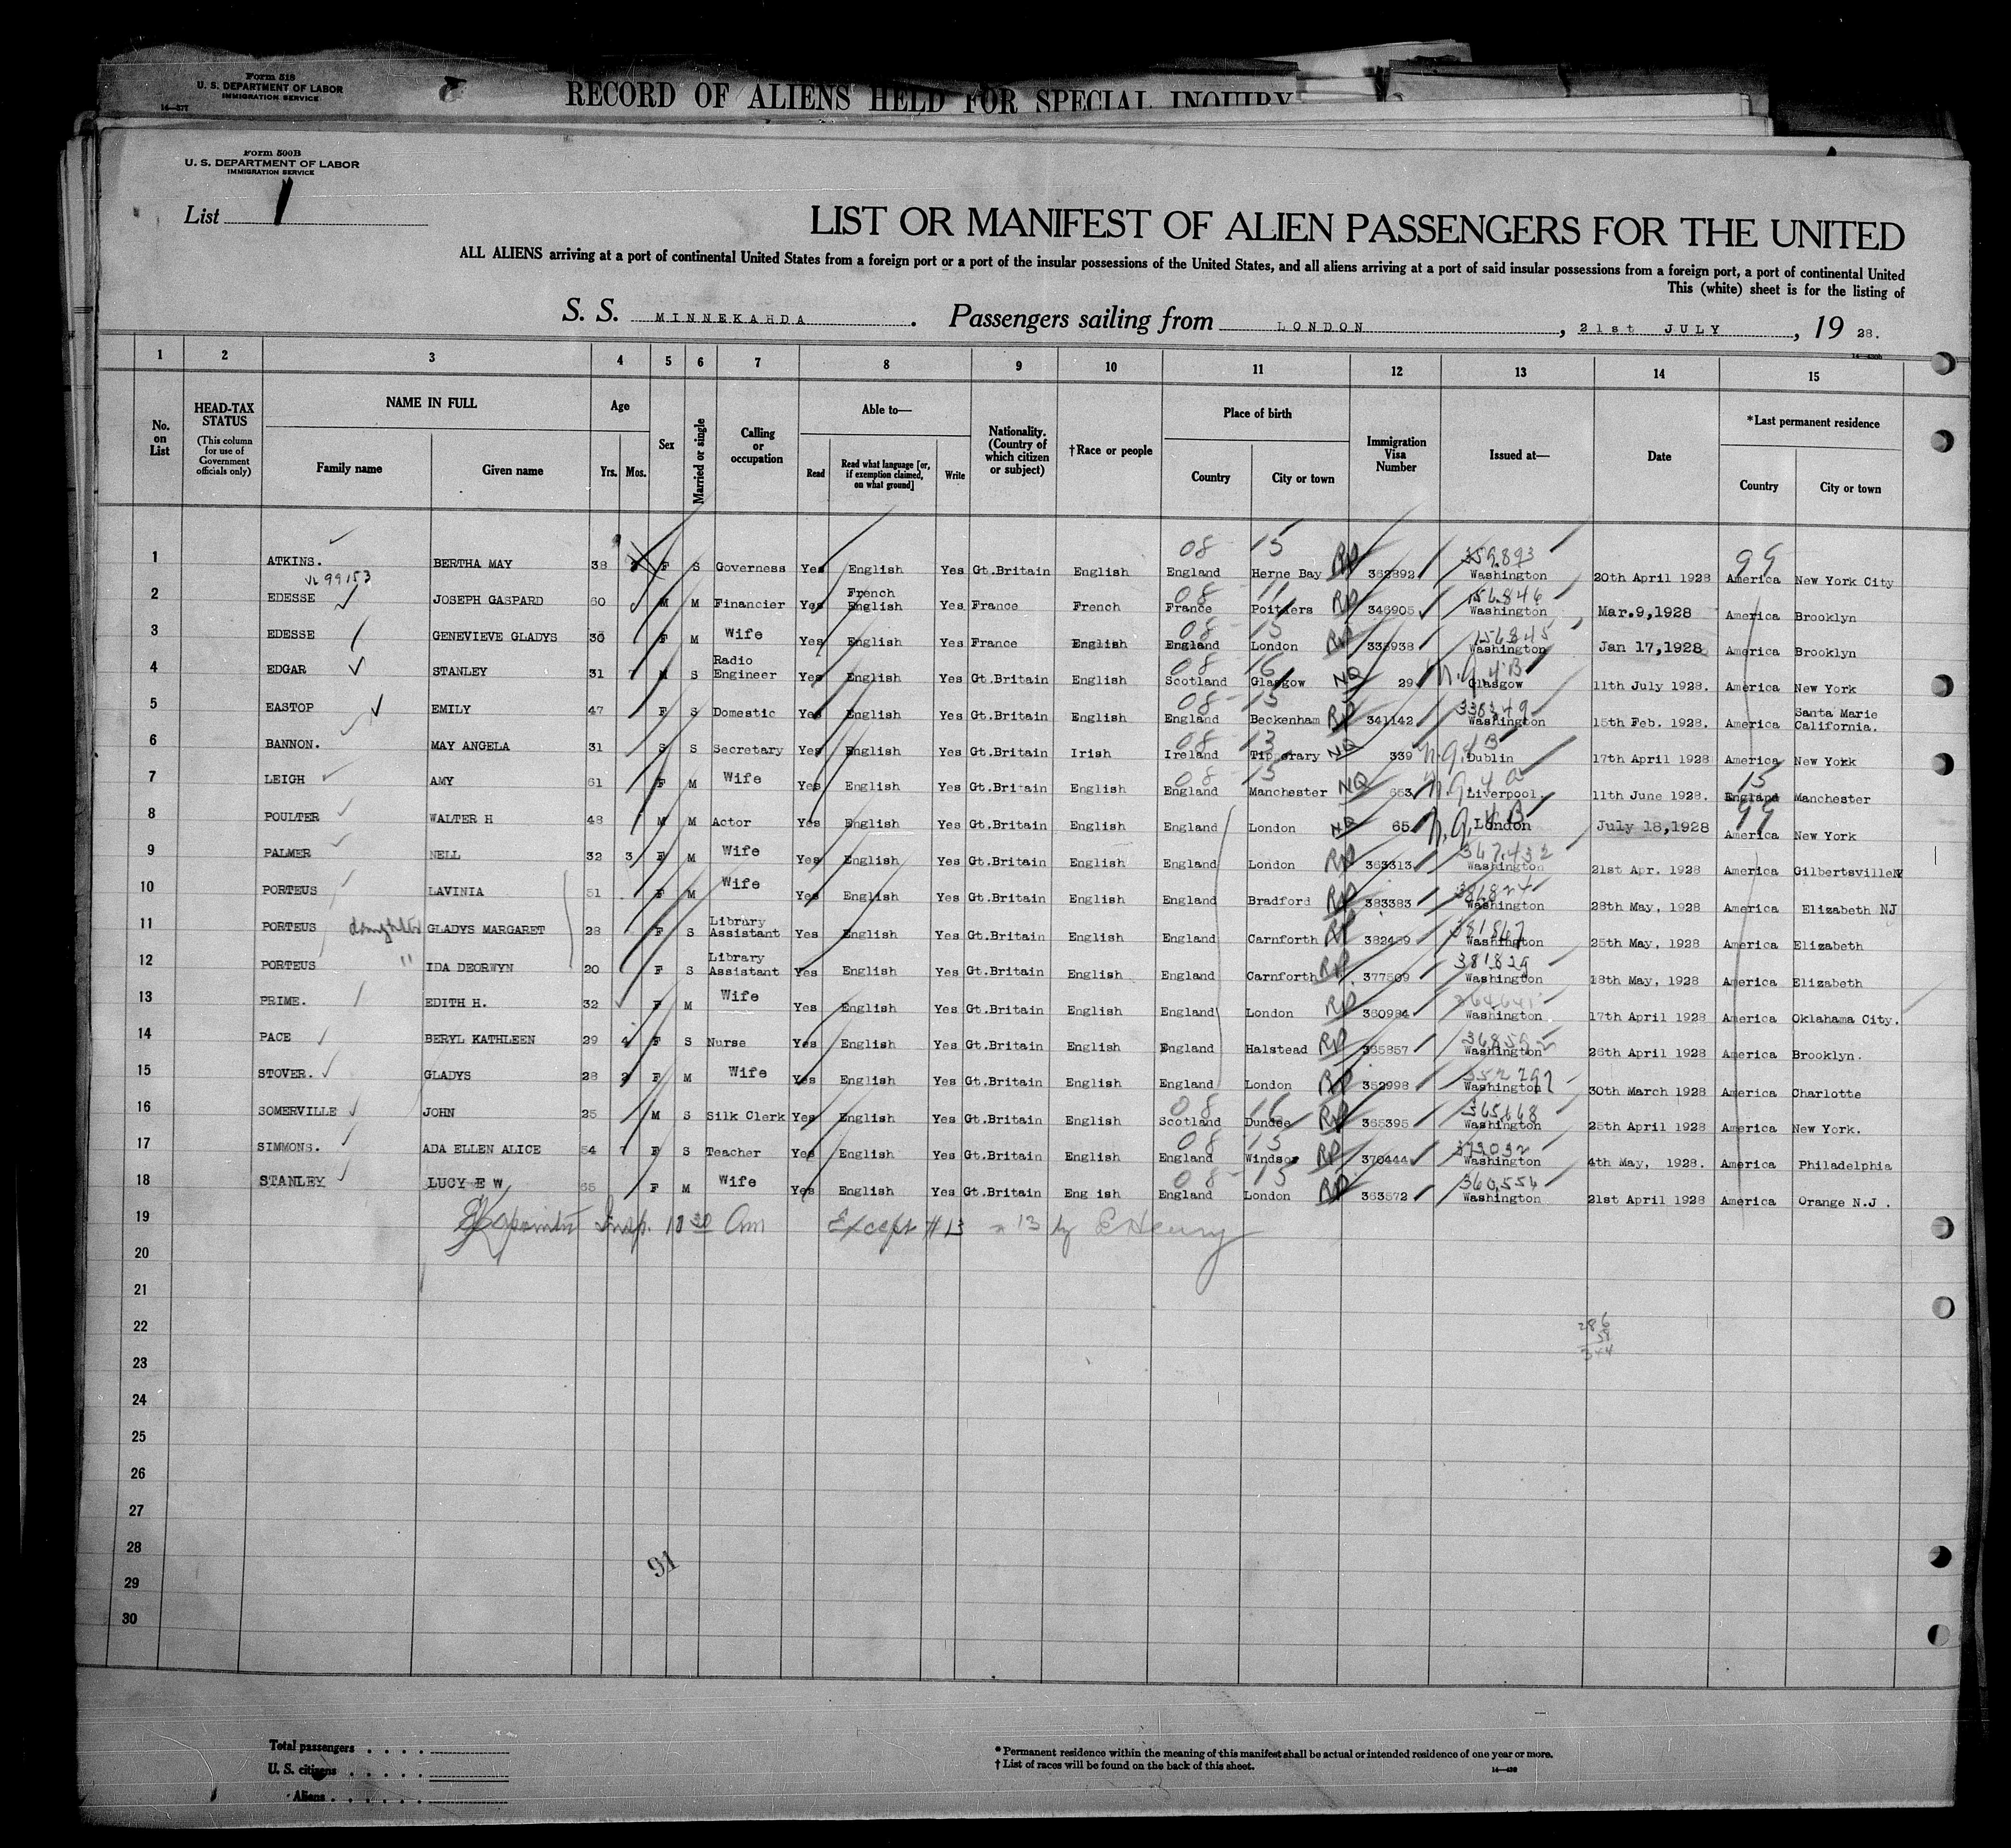 Form 518
U. S. DEPARTMENT OF LABOR
IMMIGRATION SERVICE
14—577
RECORD OF ALIENS HELD FOR SPECIAL INQUIRY
Form 500B
U. S. DEPARTMENT OF LABOR
IMMIGRATION SERVICE
List 1
LIST OR MANIFEST OF ALIEN PASSENGERS FOR THE UNITED
ALL ALIENS arriving at a port of continental United States from a foreign port or a port of the insular possessions of the United States, and all aliens arriving at a port of said insular possessions from a foreign port, a port of continental United
This (white) sheet is for the listing of
S. S. MINNEKAHDA. Passengers sailing from LONDON, 21st JULY, 19 28.
1 2 3 4 5 6 7 8 9 10 11 12 13 14 15
No. on List
HEAD-TAX STATUS (This column for use of Government officials only)
NAME IN FULL Family name Given name
Age Yrs. Mos.
Sex
Married or single
Calling or occupation
Able to— Read Read what language [or, if exemption claimed, on what ground] Write
Nationality. (Country of which citizen or subject)
†Race or people
Place of birth Country City or town
Immigration Visa Number
Issued at—
Date
*Last permanent residence Country City or town
1 ATKINS. BERTHA MAY 38 F S Governess Yes English Yes Gt.Britain English 08 England 15 Herne Bay RP 362892 359893 Washington 20th April 1928 99 America New York City
99153
2 EDESSE JOSEPH GASPARD 60 M M Financier Yes French English Yes France French 08 France 11 Poitiers RP 346905 156846 Washington Mar.9,1928 America Brooklyn
3 EDESSE GENEVIEVE GLADYS 30 F M Wife Yes English Yes France English 08 England 15 London RP 338938 156845 Washington Jan 17,1928 America Brooklyn
4 EDGAR STANLEY 31 M S Radio Engineer Yes English Yes Gt.Britain English 08 Scotland 16 Glasgow NQ 29 N.Q.4B Glasgow 11th July 1928. America New York
5 EASTOP EMILY 47 F S Domestic Yes English Yes Gt.Britain English 08 England 15 Beckenham RP 341142 338349 Washington 15th Feb. 1928. America Santa Marie California.
6 BANNON. MAY ANGELA 31 S S Secretary Yes English Yes Gt.Britain Irish 08 Ireland 13 Tipperary NQ 339 N.Q.4B Dublin 17th April 1928 America New York
7 LEIGH AMY 61 F M Wife Yes English Yes Gt.Britain English 08 England 15 Manchester NQ 663 N.Q.4a Liverpool. 11th June 1928. 15 England Manchester
8 POULTER WALTER H 48 M M Actor Yes English Yes Gt.Britain English England London NQ 65 N.Q.4B London July 18,1928 99 America New York
9 PALMER NELL 32 3 F M Wife Yes English Yes Gt.Britain English England London RP 363313 347432 Washington 21st Apr. 1928 America GilbertsvilleNY
10 PORTEUS LAVINIA 51 F M Wife Yes English Yes Gt.Britain English England Bradford RP 383383 381824 Washington 28th May, 1928 America Elizabeth NJ
11 PORTEUS daughter GLADYS MARGARET 28 F S Library Assistant Yes English Yes Gt.Britain English England Carnforth RP 382489 381867 Washington 25th May, 1928 America Elizabeth
12 PORTEUS " IDA DEORWYN 20 F S Library Assistant Yes English Yes Gt.Britain English England Carnforth RP 377509 381829 Washington 18th May, 1928 America Elizabeth
13 PRIME. EDITH H. 32 F M Wife Yes English Yes Gt.Britain English England London RP 360984 Washington 17th April 1928 America Oklahoma City.
14 PACE BERYL KATHLEEN 29 4 F S Nurse Yes English Yes Gt.Britain English England Halstead RP 365857 Washington 26th April 1928 America Brooklyn.
15 STOVER. GLADYS 28 2 F M Wife Yes English Yes Gt.Britain English England London RP 352998 352797 Washington 30th March 1928 America Charlotte
16 SOMERVILLE JOHN 25 M S Silk Clerk Yes English Yes Gt.Britain English 08 Scotland 16 Dundee RP 365395 365668 Washington 25th April 1928 America New York.
17 SIMMONS. ADA ELLEN ALICE 54 F S Teacher Yes English Yes Gt.Britain English 08 England 15 Windsor RP 370444 373032 Washington 4th May, 1928. America Philadelphia
18 STANLEY LUCY E W 65 F M Wife Yes English Yes Gt.Britain Eng ish 08 England 15 London RP 363572 360,554 Washington 21st April 1928 America Orange N.J .
19 Insp. 10 30 Am Except #13 13 by E Henry
20
21
22 286
58
344
23
24
25
26
27
28
91
29
30
Total passengers
U. S. citizens
Aliens
* Permanent residence within the meaning of this manifest shall be actual or intended residence of one year or more.
† List of races will be found on the back of this sheet.